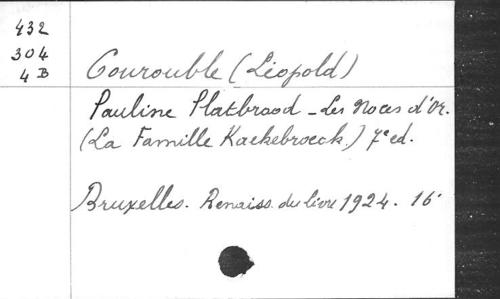 432
304
4 B
Courouble (Léopold)
Pauline Platbrood - Les Noces d'Or.
(La Famille Kaekebroeck.) 7e ed.
Bruxelles. Renaiss. du livre 1924. 16°